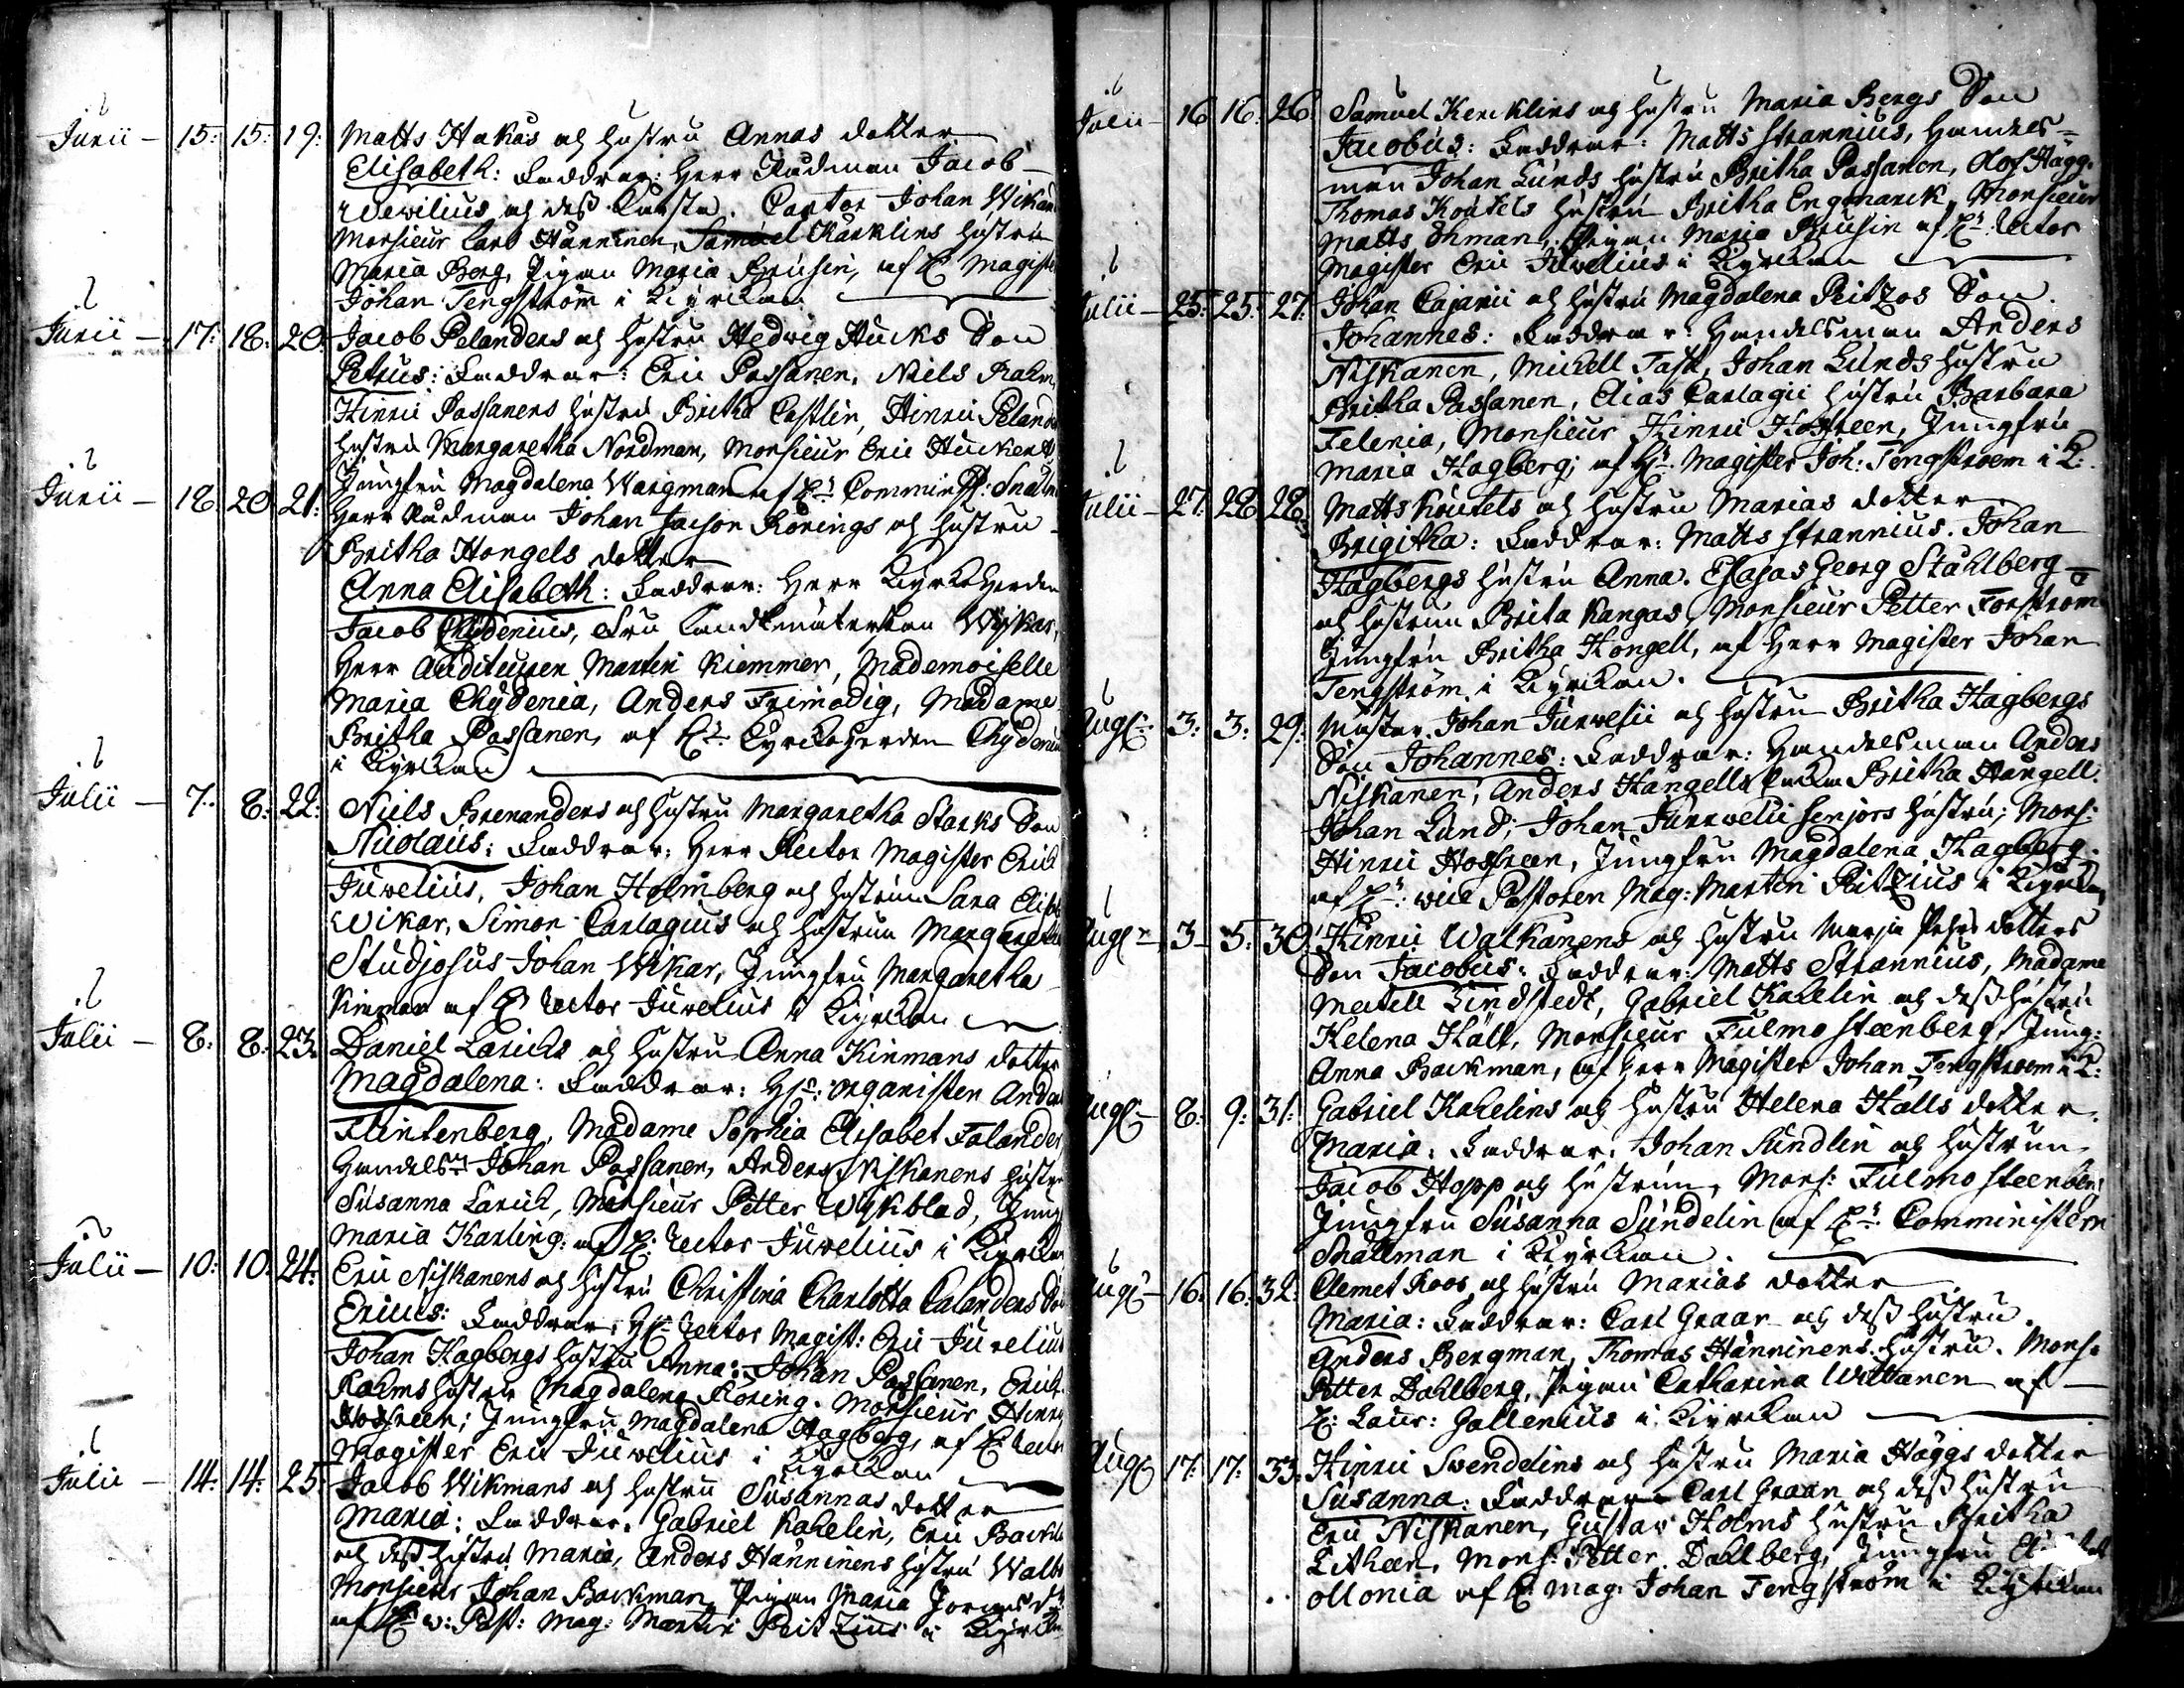 Junii - 15: 15: 19: Matts Hakas och hustru Annas dotter
Elisabeth: Faddrar: Herr Rådman Jacob
och deß Kusta. Cantor Johan Wikar
Monsieur Carl Hänninen, Samuel Käcklins hustru
Maria Berg, Pigan Maria Brusin, af H Magist
Johan Tengström i Kyrkan
Junii - 17: 18: 20: Jacob Pelanders och hustru Hedwig Hucks Son
Petrus: Faddrar: Eric Passanen, Niels Rahm,
Hinric Passanens hustru Britha Castlin, Hinric Peland
hustru Margaretha Nordman, Monsieur Eric Huckert
Jungfru Magdalena Wargman af Hr Comminist: Snällm
Junii - 18 20 21: Herr Rådman Johan Jacson Rörings och hustru
Britha Hongels dotter
Anna Elisabeth: Faddrar: Herr Kyrkoherden
Jacob Chydenius, Fru Landtmäterskan Wijkar,
Herr Auditeuren Martin Kiemmer, Mademoiselle
Maria Chydenia, Anders Frimodig, Madame
Britha Passanen, af Hr Kyrkoherden Chydeniu
i Kyrkan
Julii - 7: 8: 22: Niels Brenanders och hustru Margaretha Starks Son
Nicolaus: Faddrar: Herr Rector Magister Erich
Juvelius, Johan Holmberg och hustrun Sara Elis
Wikar, Simon Carlagius och hustrun Margareta
Studjosus Johan Wikar, Jungfru Margaretha
Kinman af H Rector Juvelius i Kyrkan
Julii - 8: 8: 23: Daniel Larichs och hustru Anna Kinmans dotter
Magdalena: Faddrar: Hr: organisten And
Flintenberg, Madame Sophia Elisabet Falander
Handelsm Johan Passanen, Anders Niskanens hustru
Susanna Larich, Monsieur Petter Wijkblad, Jung
Maria Karling: af H: Rector Juvelius i Kyrkan
Julii - 10: 10: 24: Eric Niskanens och hustru Christina Charlotta Calanders So
Ericus: Faddrar: Hr Rector Magist: Eric Juvelius
Johan Hagbergs hustru Anna: Johan Passanen, Erich
Rahms hustru Magdalena Röring. Monsieur Hinric
Hoffreen; Jungfru Magdalena Hagberg, af H: Rector
Magister Eric Juvelius i Kyrkan
Julii - 14: 14: 25: Jacob Wikmans och hustru Susannas dotter
Maria: Faddrar: Gabriel Kahelin, Eric Back
och deß hustru Maria, Anders Hänninens hustru Walb
Monsieur Johan Backman, Pigan Maria
af Hr v: Past: Mag: Martin Peitzius i Kyrkan
Julii - 16 16: 26 Samuel Kercklins och hustru Maria Bergs Son
Jacobus: Faddrar: Matts Strannius, Handels-
man Johan Lunds hustru Britha Passanen, Olof Hägg.
Thomas Koutels hustru Britha Engmarck, Monsieur
Matts öhman, Pigan Maria Brusin af Hr Rector
Magister Eric Juvelius i Kyrkan
Julii - 25: 25: 27: Johan Cajanii och hustru Magdalena Peitzos Son.
Johannes: Faddrar: Handelsman Anders
Niskanen, Michell Fast, Johan Lunds hustru
Britha Passanen, Elias Carlagii hustru Barbara
Felenia, Monsieur Hinric Hoffreen, Jungfru
Maria Hagberg; af Hr: Magister Joh: Tengstroem i K:
Julii - 27: 28 28: Matts Koutels och hustru Marias dotter
Brigitha: Faddrar: Matts Strannius. Johan
Hagbergs hustru Anna. Esaias Georg Ståhlberg
och hustrun Brita Kangas, Monsieur Petter Forström
Jungfru Britha Hongell, af Herr Magister Johan
Tengström i Kyrkan.
Aug: 3: 3: 29: Mäster Johan Jurvelii och hustru Britha Hagbergs
Son Johannes: Faddrar: Handelsman Anders
Niskanen, Anders Hångells Enka Britha Hångell.
Johan Lund; Johan Jurvelii Senjors hustru; Mons:
Hinric Hoffreen, Jungfru Magdalena Hagberg.
af Hr: vice Pastoren Mag: Martin Peitzius i Kyrkan
Aug: 3 5: 30: Hinric Walkanens och hustru Marja Pehrs dotters
Son Jacobus: Faddrar: Matts Strannius, Madame
Lindstedt, Gabriel Kahelin och deß hustru
Helena Häll, Monsieur Fulmo Steenberg, Jung:
Anna Backman, af Herr Magister Johan Tengstroem i K:
Aug: 8: 9: 31: Gabriel Kahelins och hustru Helena Hälls dotter
Maria: Faddrar: Johan Sundlin och hustrun
Jacob Hopp och hustrun, Mons: Fulmo Steenberg
Jungfru Susanna Sundelin af Hr Comministern
Snällman i Kyrkan.
Aug: 16: 16: 32: Clemet Roos och hustru Marias dotter
Maria: Faddrar: Carl Graan och deß hustru.
Anders Bergman, Thomas Hänninens hustru. Mons:
Petter Dahlberg, Pigan Catharina Wittanen af
H: Gallenius i Kyrkan
Aug: 17: 17: 33: Hinric Swendelins och hustru Maria Häggs dotter
Susanna: Faddrar Carl Graan och deß hustru
Eric Niskanen, Gustav Holms hustru Britha
Litheen, Mons: Petter Dahlberg, Jungfru
ollonia af H Mag: Johan Tengström i Kyrkan